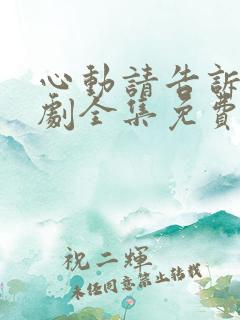 心動請告訴
劇全集免費
祝二輝
未经同意禁止转载